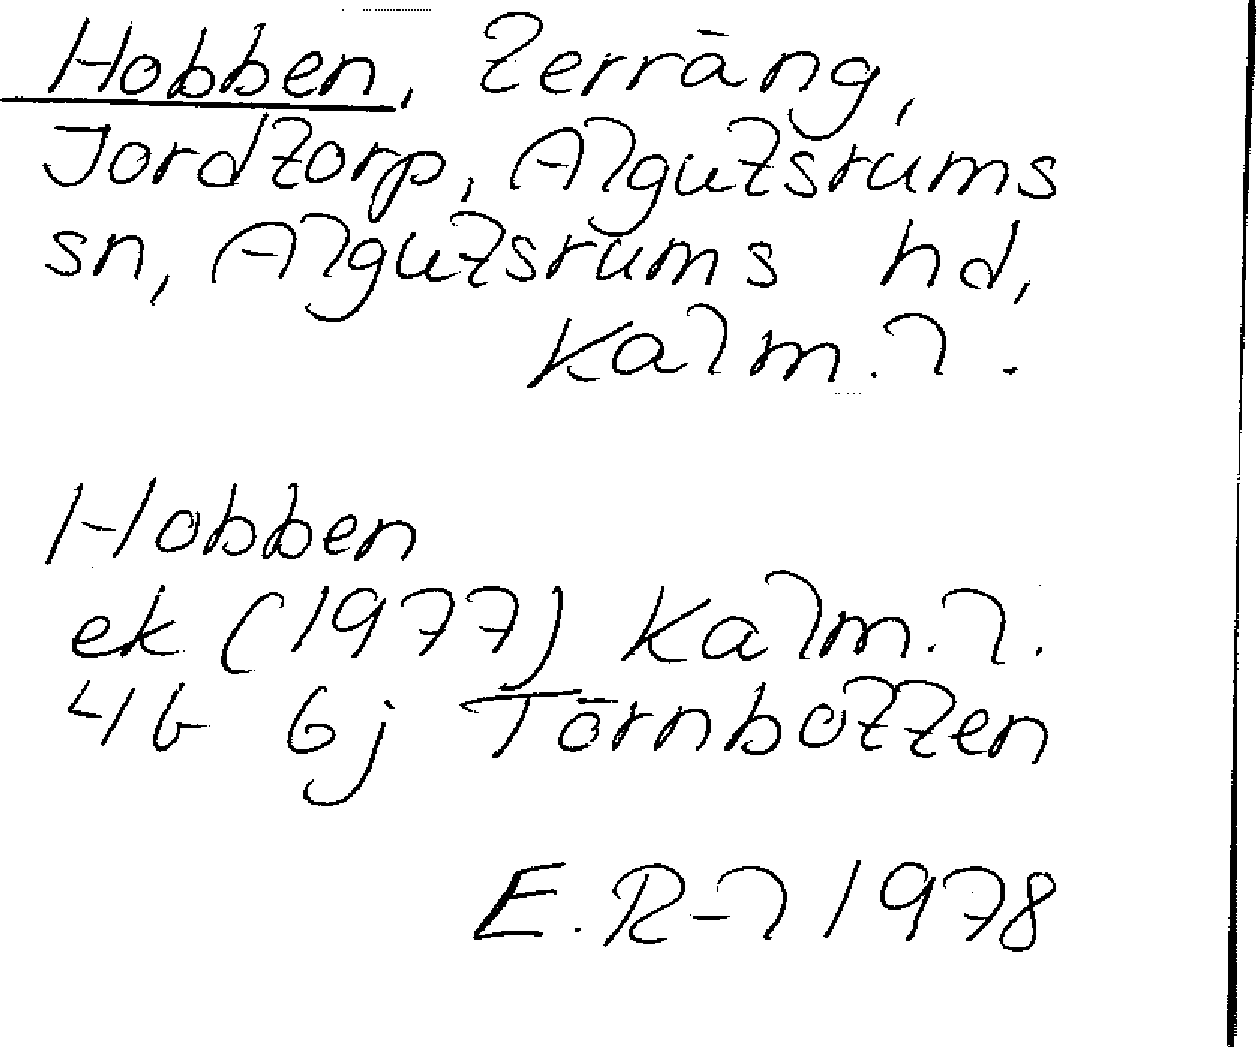 Hobben, terräng,
Jordtorp, Algutsrums
sn, Algutsrums hd,
Kalm. l.
Hobben
ek (1977) Kalm. l.
4G 6j Törnbotten
E. R-l 1978